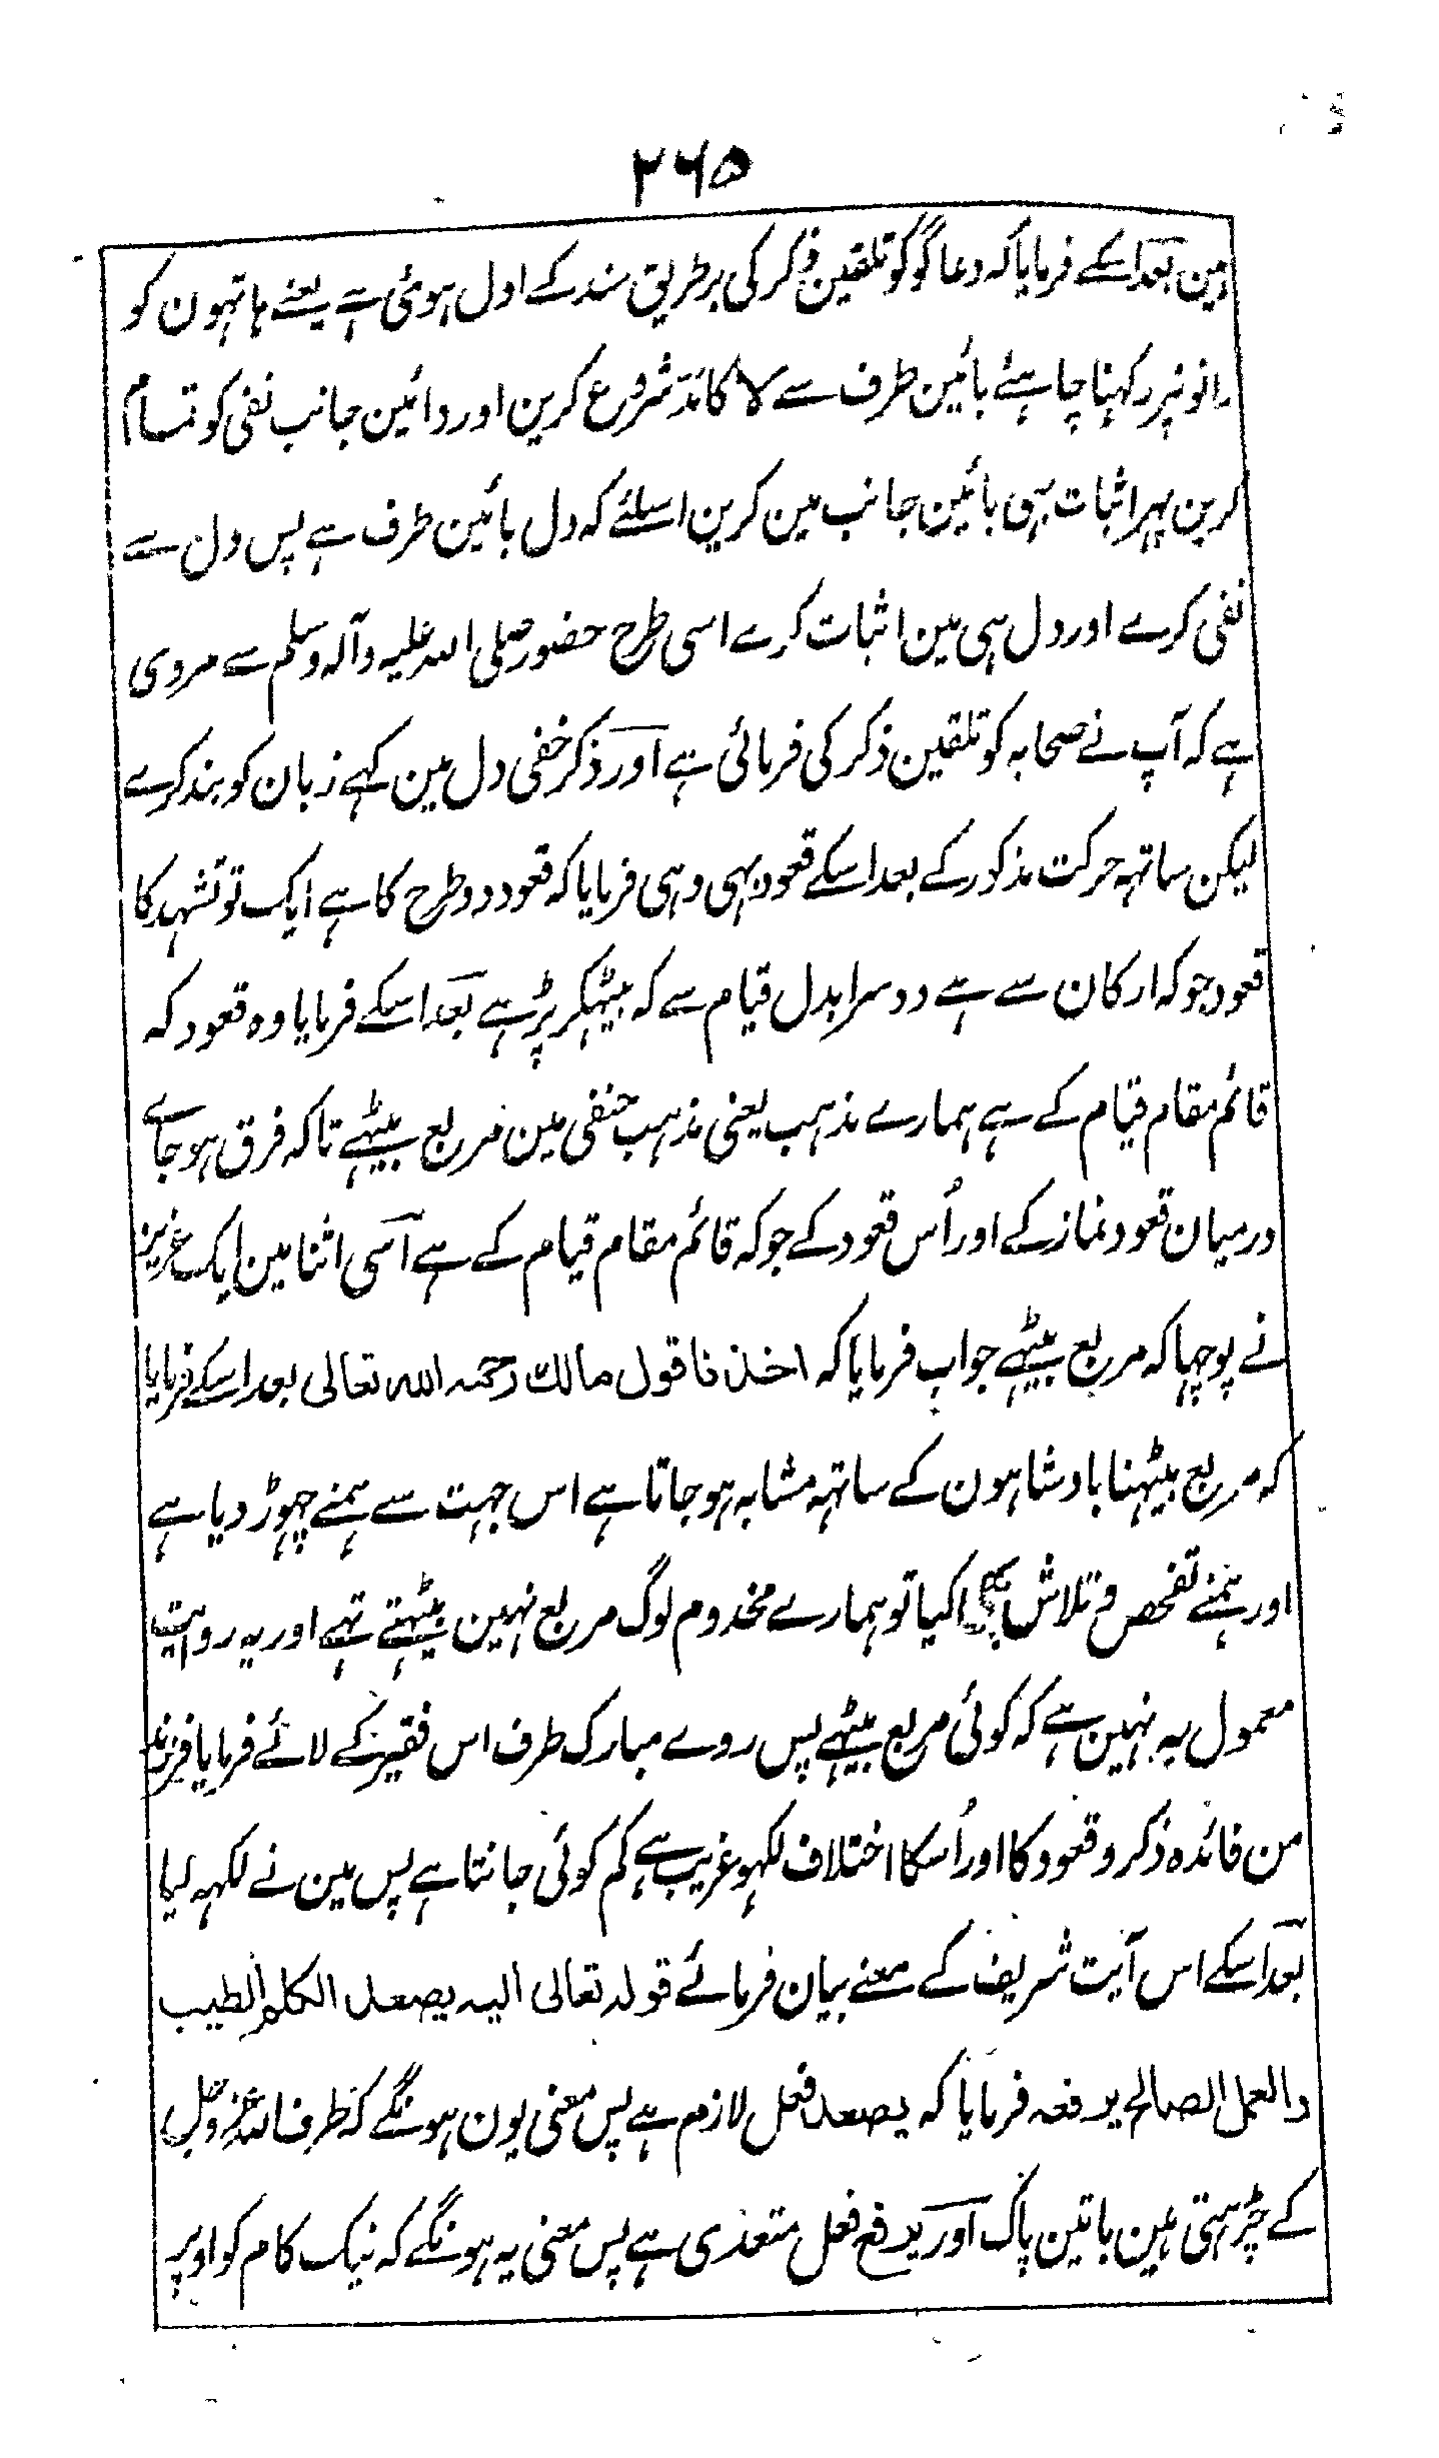 ۲۶۵
مین بعد اسکے فرمایا کہ دعا گو کو تلقین ذکر کی بر طریق سند کے اول ہوئی ہے یعنے ہاتہون کو
زانو پر رکہنا چاہئے بائین طرف سے لا کا مد شروع کرین اور دائین جانب نفی کو تمام
کرین پہر اثبات بہی بائین جانب مین کرین اسلئے کہ دل بائین طرف ہے پس دل سے
نفی کرے اور دل ہی مین اثبات کرے اسی طرح حضور صلی اللہ علیہ وآلہ وسلم سے مروی
ہے کہ آپ نے صحابہ کو تلقین ذکر کی فرمائی ہے اور ذکر خفی دل مین کہے زبان کو بند کرے
لیکن ساتہہ حرکت مذکور کے بعد اسکے قعود بہی وہی فرمایا کہ قعود دو طرح کا ہے ایک تو تشہد کا
قعود جو کہ ارکان سے ہے دوسرا بدل قیام سے کہ بیٹہکر پڑہے بعد اسکے فرمایا وہ قعود کہ
قائم مقام قیام کے ہے ہمارے مذہب یعنی مذہب حنفی مین مربع بیٹہے تاکہ فرق ہو جاے
درمیان قعود نماز کے اور اُس قعود کے جو کہ قائم مقام قیام کے ہے اسی اثنا مین ایک عزیز
نے پوچہا کہ مربع بیٹہے جواب فرمایا کہ اخذنا قول مالک رحمہ اللہ تعالی بعد اسکے فرمایا
کہ مربع بیٹہنا بادشاہون کے ساتہہ مشابہ ہو جاتا ہے اس جہت سے ہمنے چہوڑ دیا ہے
اور ہمنے تفحص و تلاش کیا تو ہمارے مخدوم لوگ مربع نہین بیٹہتے تہے اور یہ روایت
معمول بہ نہین ہے کہ کوئی مربع بیٹہے پس روے مبارک طرف اس فقیر کے لائے فرمایا فرزند
من فائدہ ذکر و قعود کا اور اُسکا اختلاف لکہو غریب ہے کم کوئی جانتا ہے پس مین نے لکہہ لیا
بعد اسکے اس آیت شریف کے معنے بیان فرمائے قولہ تعالی الیہ یصعد الکلم الطیب
والعمل الصالح یرفعہ فرمایا کہ یصعد فعل لازم ہے پس معنی یون ہونگے کہ طرف اللہ عزوجل
کے چڑہتی ہین باتین پاک اور یرفع فعل متعدی ہے پس معنی یہ ہونگے کہ نیک کام کو اوپر